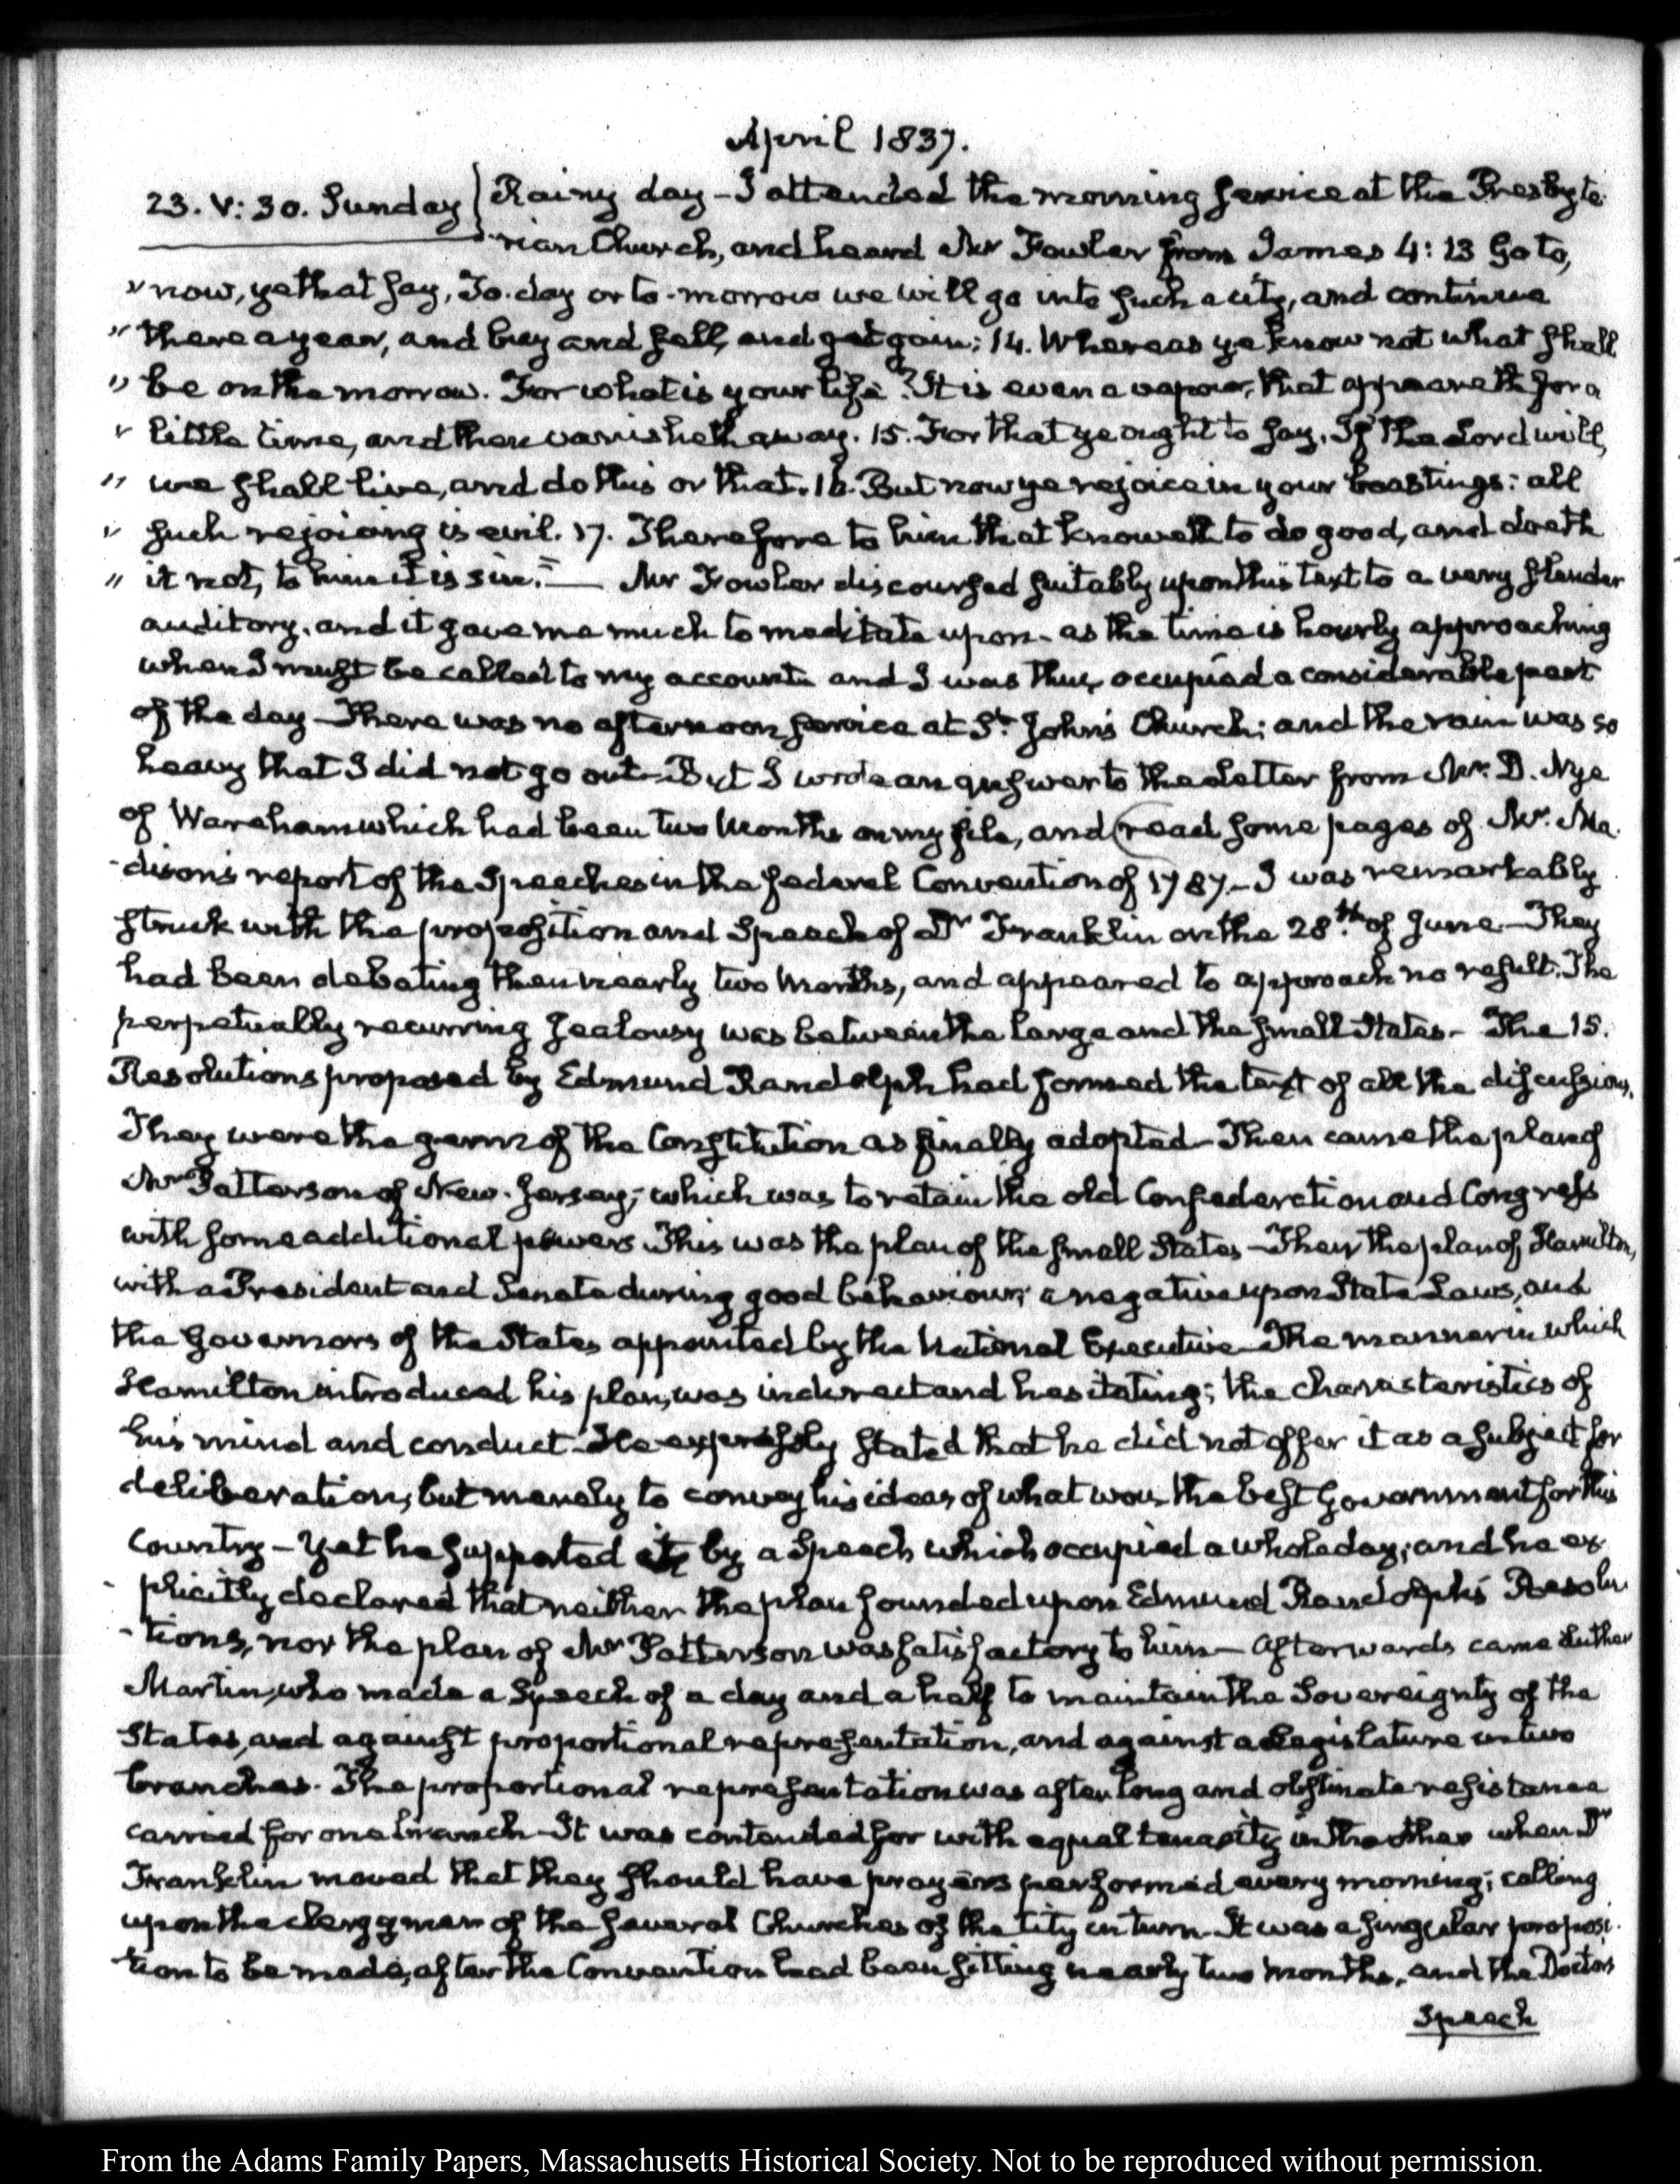 April 1837.
23. V: 30. Sunday } Rainy day – I attended the morning service at the Presbyte-
-rian Church, and heard Mr Fowler from James 4: 13 Go to,
" now, ye that say, To-day or to-morrow we will go into such a city, and continue
" there a year, and buy and sell, and get gain; 14. Whereas ye know not what shall
" be on the morrow. For what is your life? It is even a vapour, that appeareth for a
" little time, and then vanisheth away. 15. For that ye ought to say, If the Lord will,
" we shall live, and do this or that. 16. But now ye rejoice in your boastings: all
" such rejoicing is evil. 17. Therefore to him that knoweth to do good, and doeth
" it not, to him it is sin." — Mr Fowler discoursed suitably upon this text to a very slender
auditory, and it gave me much to meditate upon – as the time is hourly approaching
when I must be called to my account and I was thus occupied a considerable part
of the day – There was no afternoon service at St. John's Church; and the rain was so
heavy that I did not go out – But I wrote an answer to the Letter from Mr. D. Nye
of Wareham which had been two Months on my file, and (read some pages of Mr. Ma-
-dison's report of the Speeches in the federal Convention of 1787. – I was remarkably
struck with the proposition and Speech of Dr Franklin on the 28th. of June – They
had been debating then nearly two Months, and appeared to approach no result. The
perpetually recurring jealousy was between the large and the small States – The 15.
Resolutions proposed by Edmund Randolph had formed the text of all the discussions.
They were the germ of the Constitution as finally adopted – Then came the plan of
Mr Patterson of New-Jersey; which was to retain the old Confederation and Congress
with some additional powers This was the plan of the small States – Then the plan of Hamilton,
with a President and Senate during good behaviour; a negative upon State Laws, and
the Governors of the States appointed by the National Executive – The manner in which
Hamilton introduced his plan, was indirect and hesitating; the characteristics of
his mind and conduct – He expressly stated that he did not offer it as a subject for
deliberation, but merely to convey his ideas of what was the best Government for this
Country – Yet he supported it by a Speech which occupied a whole day; and he ex-
-plicitly declared that neither the plan founded upon Edmund Randolph's Resolu-
-tions, nor the plan of Mr Patterson was satisfactory to him – Afterwards came Luther
Martin, who made a Speech of a day and a half to maintain the Sovereignty of the
States, and against proportional representation, and against a Legislature in two
branches. The proportional representation was after long and obstinate resistance
carried for one branch – It was contended for with equal tenacity in the other when Dr
Franklin moved that they should have prayers performed every morning; calling
upon the clergymen of the several Churches of the City in turn – It was a singular proposi-
tion to be made, after the Convention had been sitting nearly two months, and the Doctor's
Speech
From the Adams Family Papers, Massachusetts Historical Society. Not to be reproduced without permission.